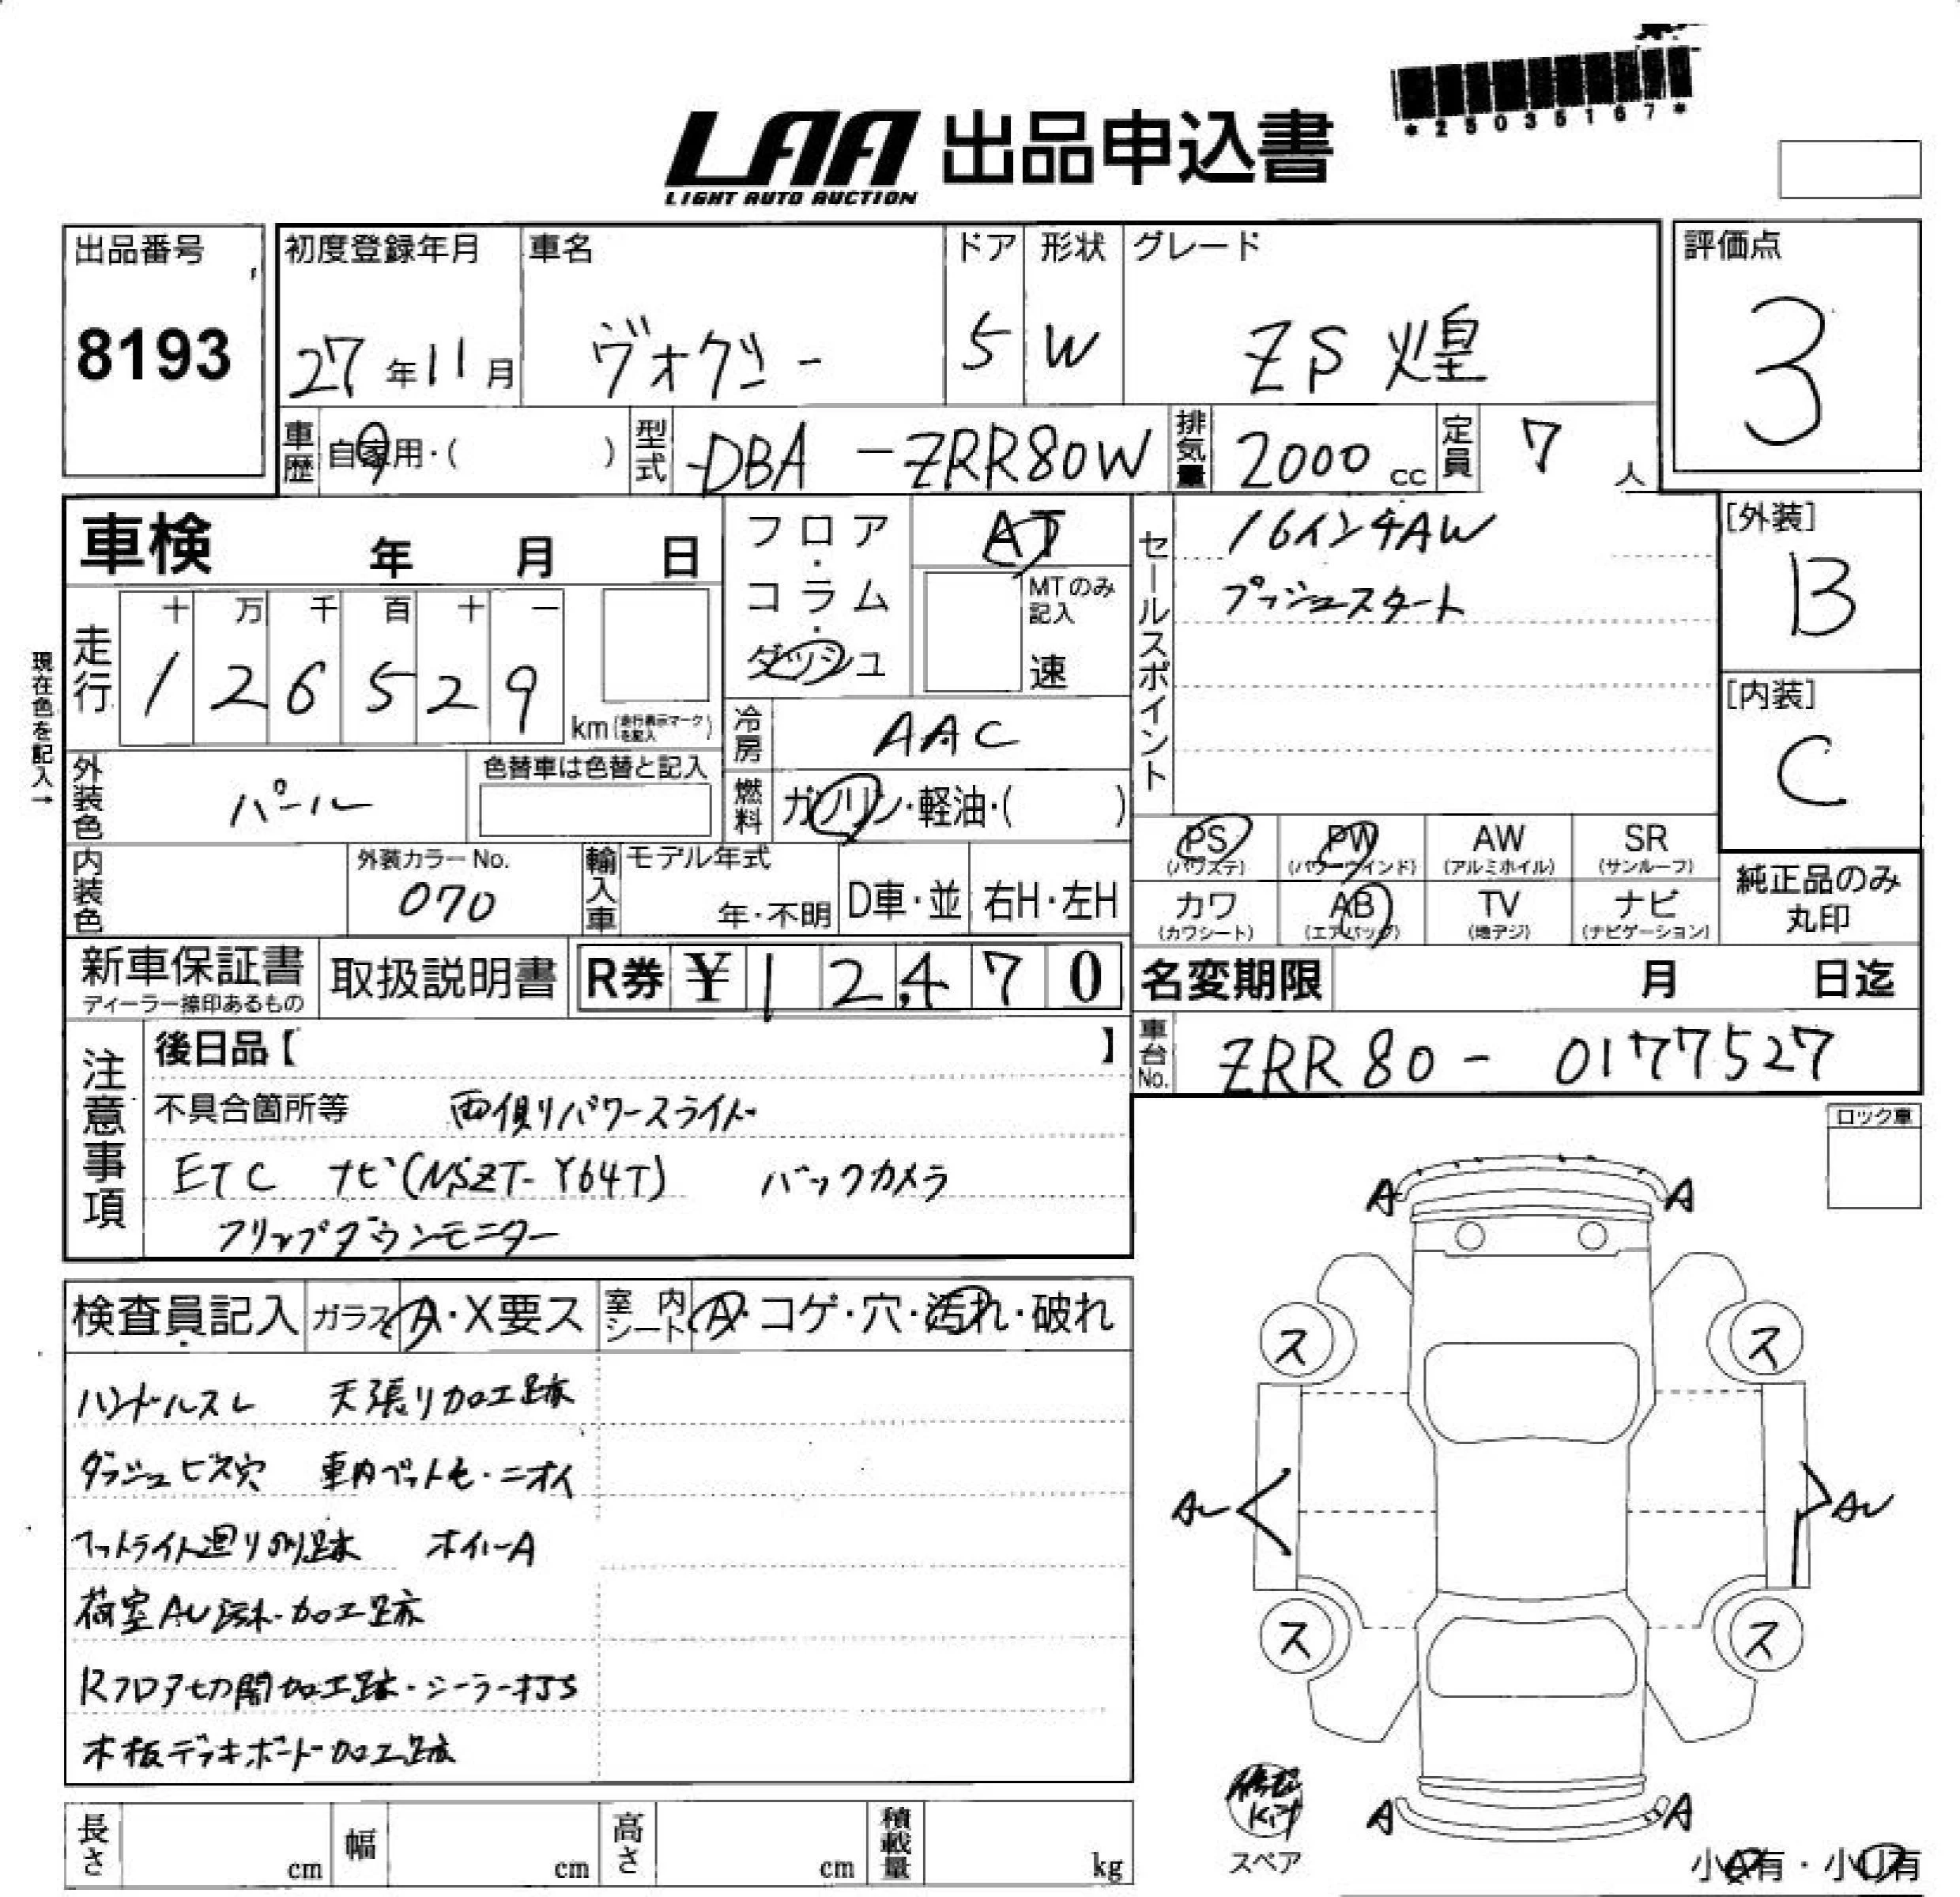 *25035167*
LAA 出品申込書
LIGHT AUTO AUCTION
出品番号 8193
初度登録年月 27年11月
車名 ヴォクシー
ドア 5
形状 W
グレード ZS 煌
評価点 3
車歴 自家用・( )
型式 DBA-ZRR80W
排気量 2000 cc
定員 7 人
車検 年 月 日
フロア・コラム・ダッシュ
AT
MTのみ記入 速
セールスポイント
16インチAW
プッシュスタート
[外装] B
[内装] C
現在色を記入→
走行 十 万 千 百 十 一
1 2 6 5 2 9 km (走行表示マークを記入)
冷房 AAC
外装色 パール
色替車は色替と記入
燃料 ガソリン・軽油・( )
内装色
外装カラーNo. 070
輸入車 モデル年式 年・不明
D車・並 右H・左H
PS (パワステ) PW (パワーウィンド) AW (アルミホイル) SR (サンルーフ)
カワ (カワシート) AB (エアバッグ) TV (地デジ) ナビ (ナビゲーション)
純正品のみ丸印
新車保証書 ディーラー捺印あるもの
取扱説明書
R券 ¥12,470
名変期限 月 日迄
車台No. ZRR80-0177527
注意事項
後日品【 】
不具合箇所等 両側パワースライド
ETC ナビ(NSZT-Y64T) バックカメラ
フリップダウンモニター
ロック車
検査員記入 ガラス A・X要ス 室内シート A・コゲ・穴・汚れ・破れ
ハンドルスレ 天張り加工跡
ダッシュビス穴 車内ペット毛・ニオイ
フットライト廻り 跡 ホイルA
荷室AU汚れ・加工跡
Rフロア切開加工跡・シーラー打S
木板デッキボード加工跡
A A
ス ス
AU AU
ス ス
A A
修理Kit
スペア
小A有・小U有
長さ cm 幅 cm 高さ cm 積載量 kg